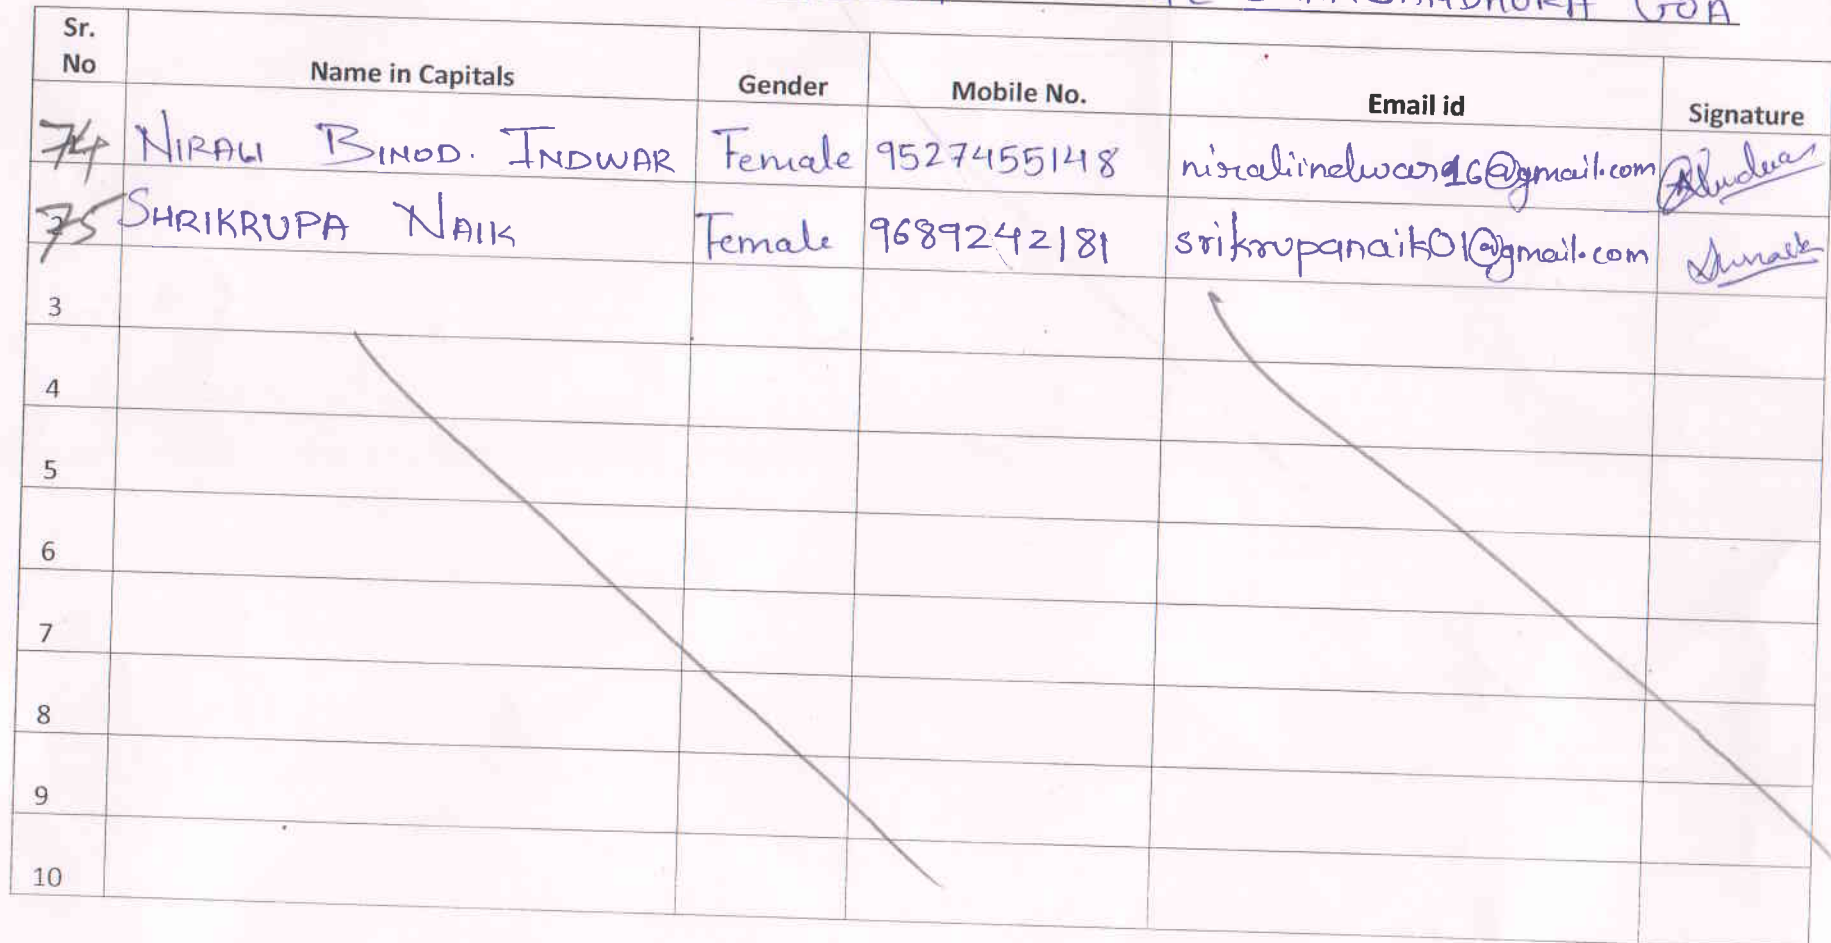 GOA
Sr. No Name in Capitals Gender Mobile No. Email id Signature
74 NIRALI BINOD. INDWAR Female 9527455148 niraliindwar96@gmail.com
75 SHRIKRUPA NAIK Female 9689242181 srikrupanaik01@gmail.com
3
4
5
6
7
8
9
10